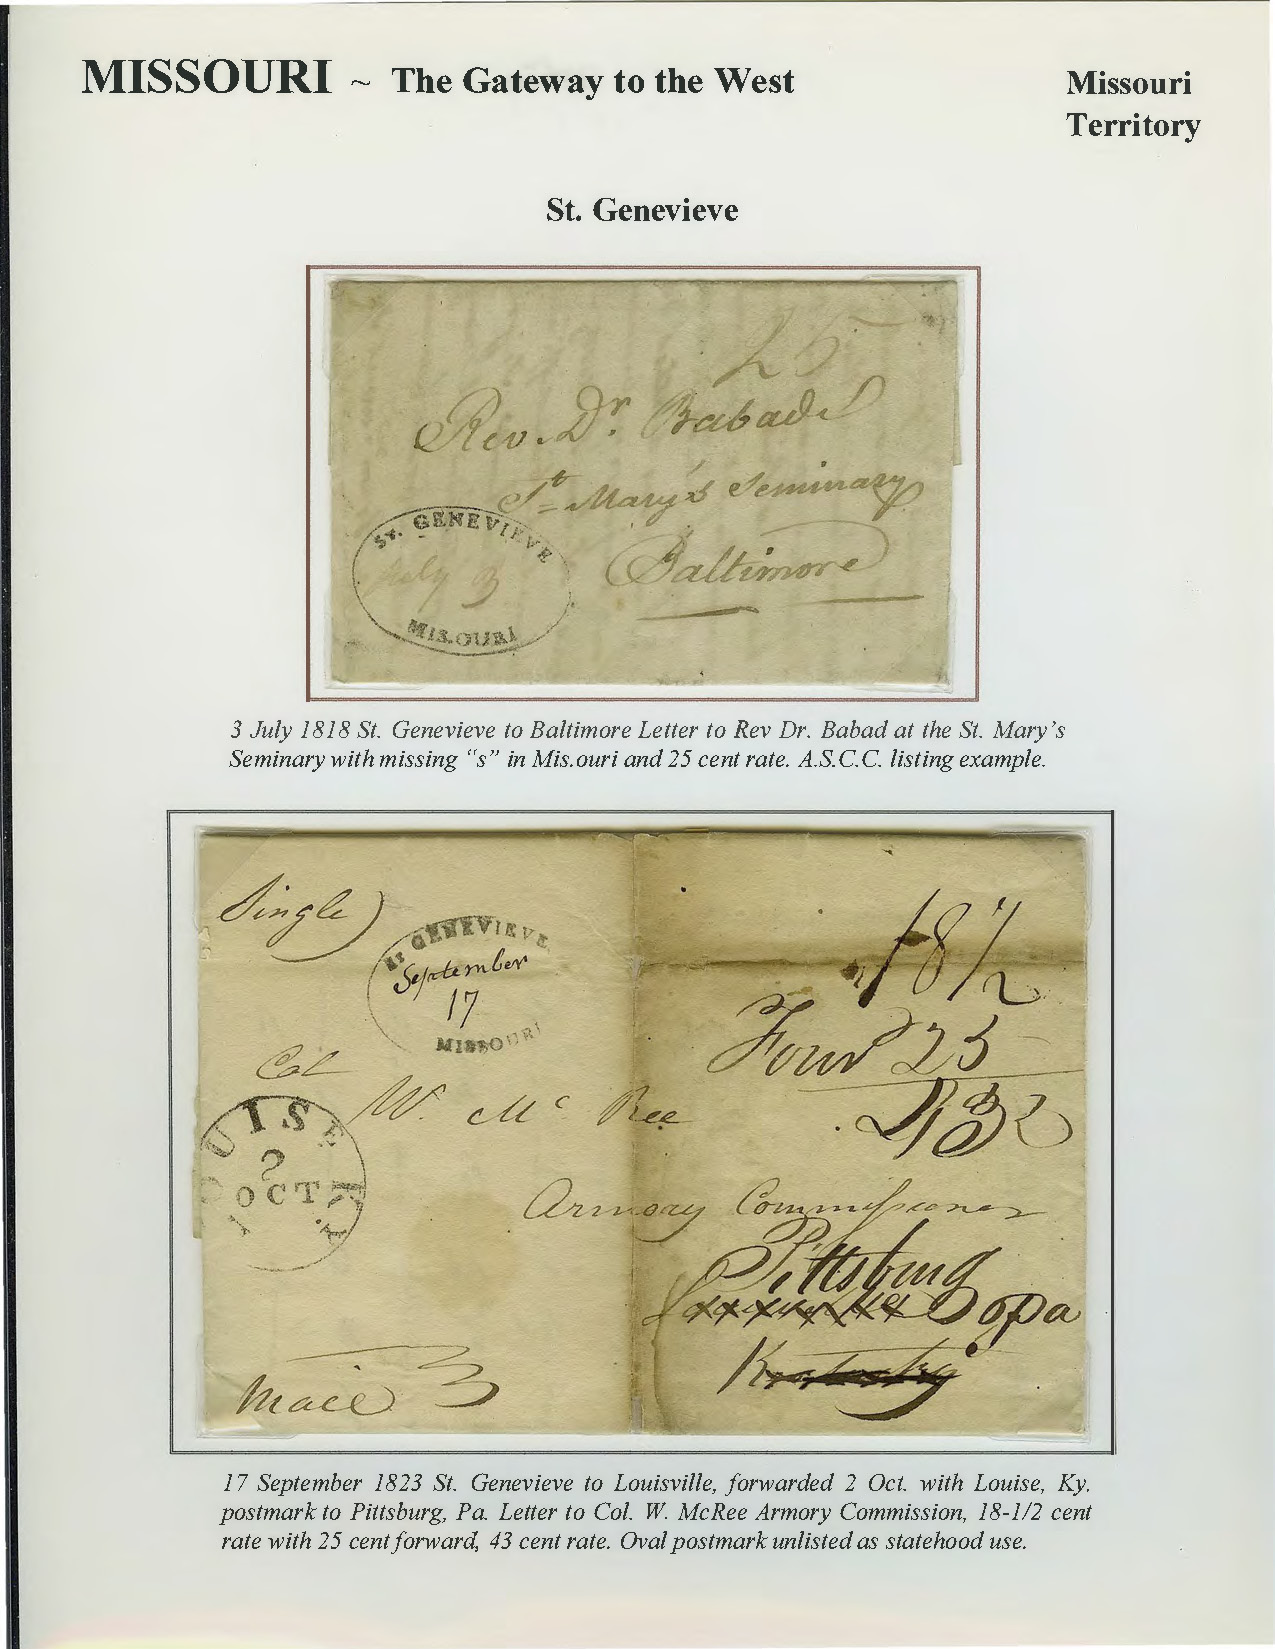 MISSOURI ~ The Gateway to the West
Missouri
Territory
St. Genevieve
25
Rev. Dr. Babad
St Mary's Seminary
Baltimore
ST. GENEVIEVE
July 3
MIS.OURI
3 July 1818 St. Genevieve to Baltimore Letter to Rev Dr. Babad at the St. Mary's
Seminary with missing "s" in Mis.ouri and 25 cent rate. A.S.C.C. listing example.
Single
ST GENEVIEVE
September
17
MISSOURI
18 1/2
Forwd 25
Col
W. Mc Ree
OUISE
2
OCT
KY.
Armory Commissioner
Pittsburg
pa
Mail
17 September 1823 St. Genevieve to Louisville, forwarded 2 Oct. with Louise, Ky.
postmark to Pittsburg, Pa. Letter to Col. W. McRee Armory Commission, 18-1/2 cent
rate with 25 cent forward, 43 cent rate. Oval postmark unlisted as statehood use.